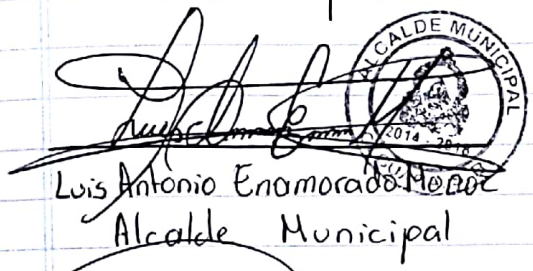 ALCALDE MUNICIPAL
2014 - 2018
Luis Antonio Enamorado
Alcalde Municipal